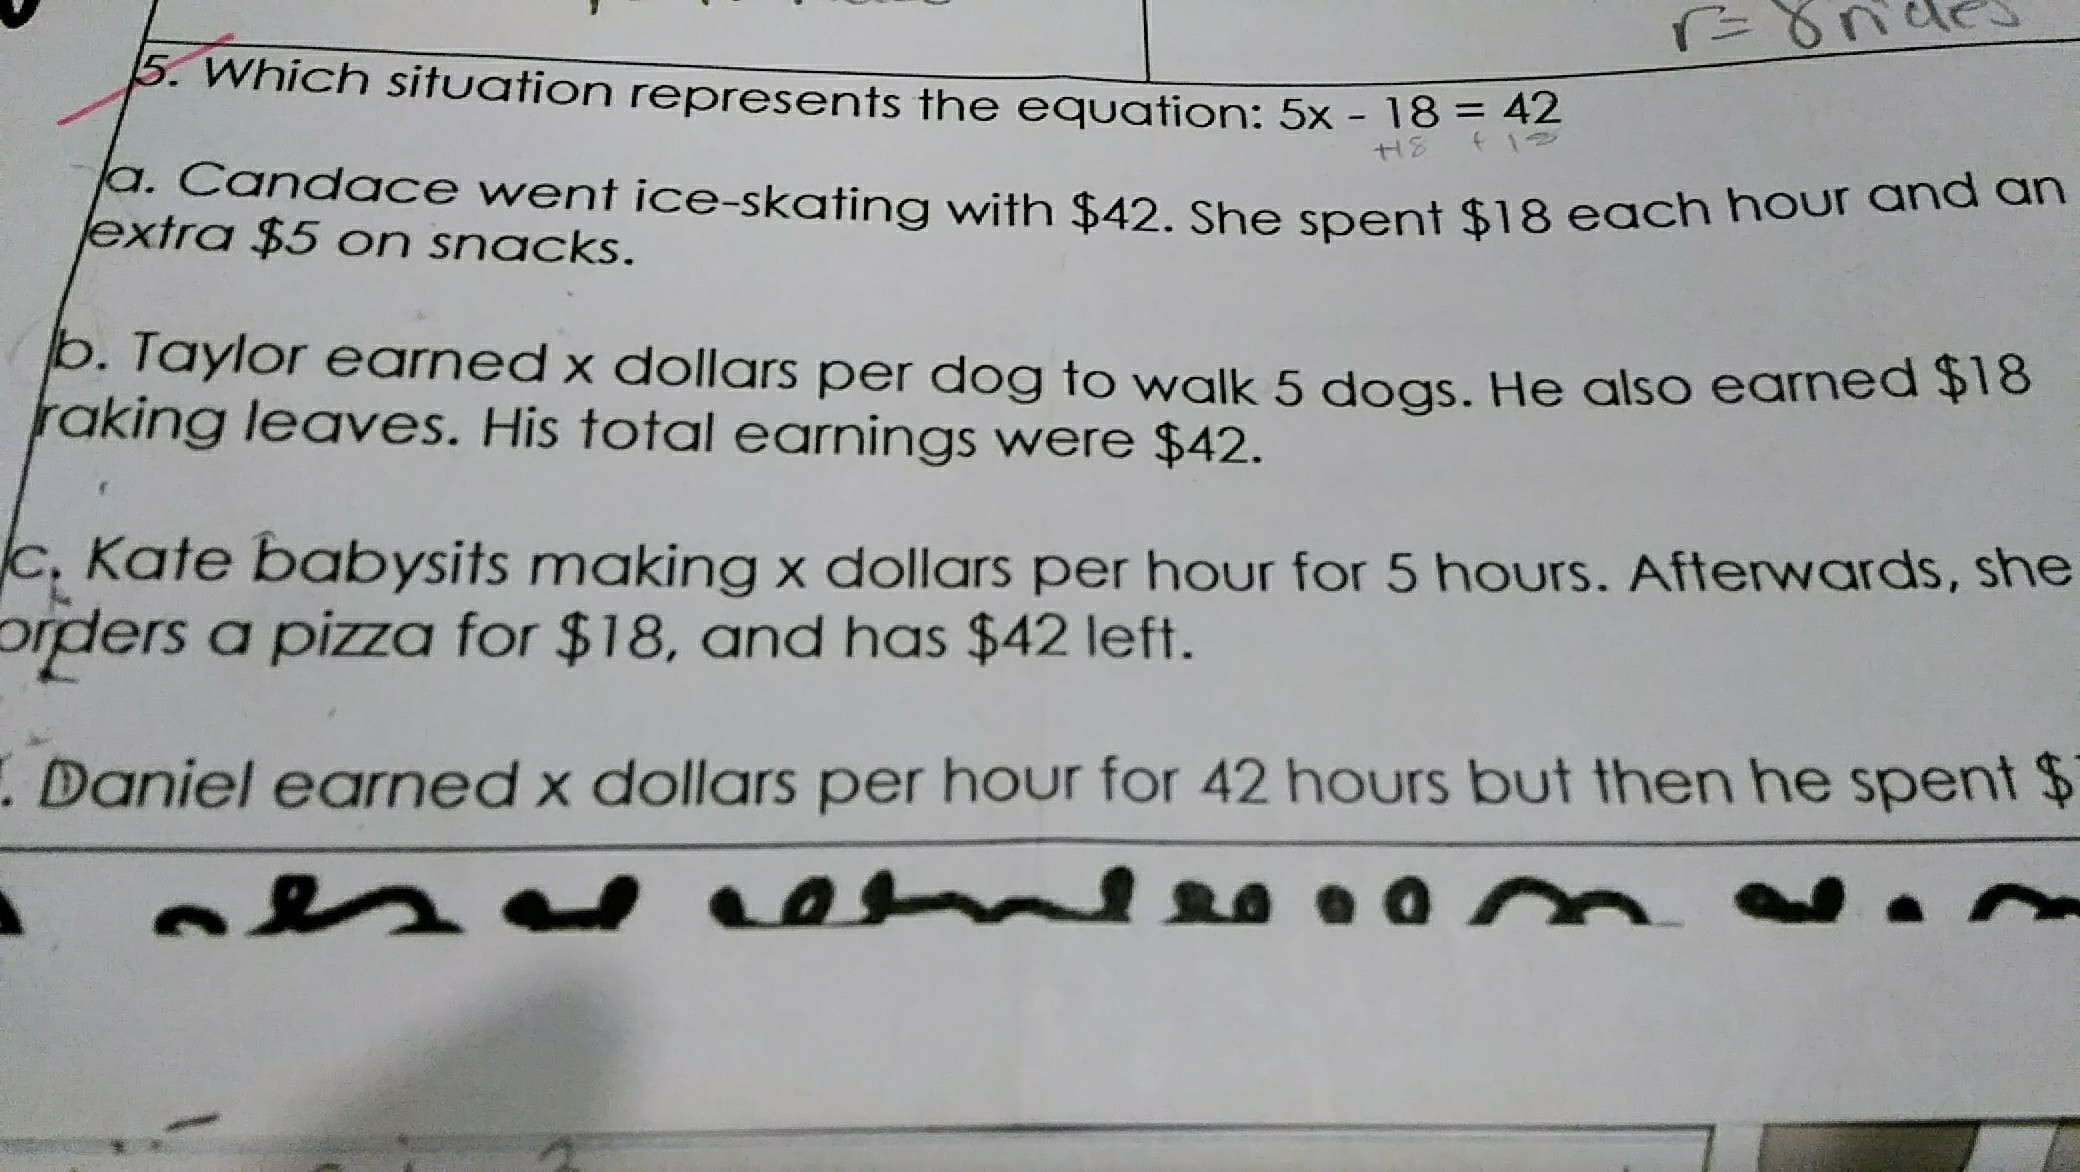 r= 8 rides
5. Which situation represents the equation: 5x - 18 = 42
+18 + 18
a. Candace went ice-skating with $42. She spent $18 each hour and an
extra $5 on snacks.
b. Taylor earned x dollars per dog to walk 5 dogs. He also earned $18
raking leaves. His total earnings were $42.
c. Kate babysits making x dollars per hour for 5 hours. Afterwards, she
orders a pizza for $18, and has $42 left.
. Daniel earned x dollars per hour for 42 hours but then he spent $